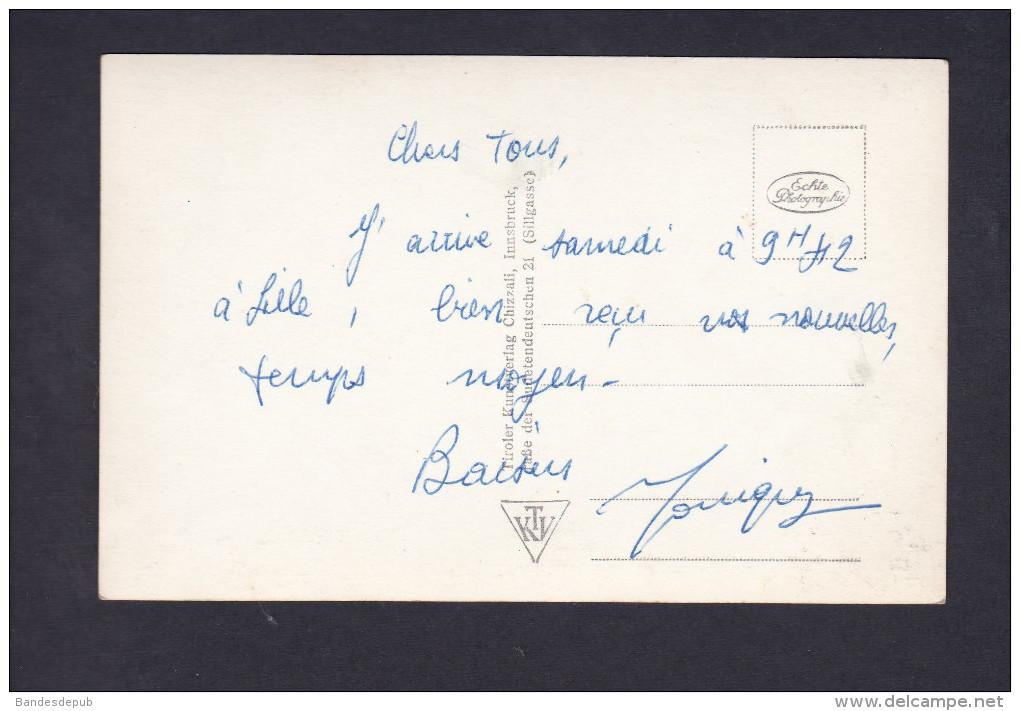 Chers Tous,
J'arrive samedi à 9H42
à Lille, bien reçu vos nouvelles,
temps moyen -
Baisers
Echte
Photographie
Tiroler Kunstverlag Chizzali, Innsbruck,
Straße der Sudetendeutschen 21 (Sillgasse)
KTV
Bandesdepub
www.delcampe.net